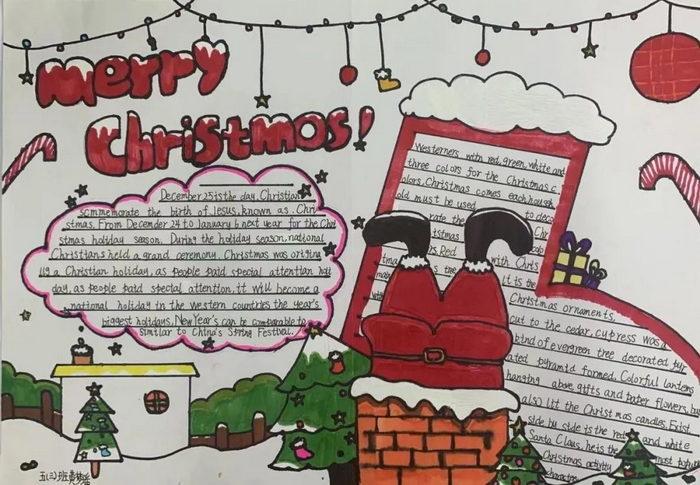 Merry
Christmas!
December 25 is the day. Christian
scommemorate the birth of Jesus, known as. Chri
stmas. From December 24 to January 6 next year for the Chri
stmas holiday season. During the holiday season, national
Christians held a grand ceremony. Christmas was origina
lly a Christian holiday, as people paid special attention. hol
day, as people paid special attention, it will become a
national holiday in the western countries the year's
biggest holidays. New Year's can be comparable to
similar to China's Spring Festival.
Westerners with red, green, white and
three colors for the Christmas c
olors, Christmas comes each
old must be used
rate the to deco
istmas Chr
rs. Red
tma with Chris
is the it is the
Christmas ornaments,
cut to the cedar, cypress was a
kind of evergreen tree decorated
ated pyramid formed. Colorful lanterns
hanging above, gifts and paper flowers,
also lit the Christmas candles. First
side by side is the red and white
Santa Claus, he is the most
Christmas activity
character
五(三)班